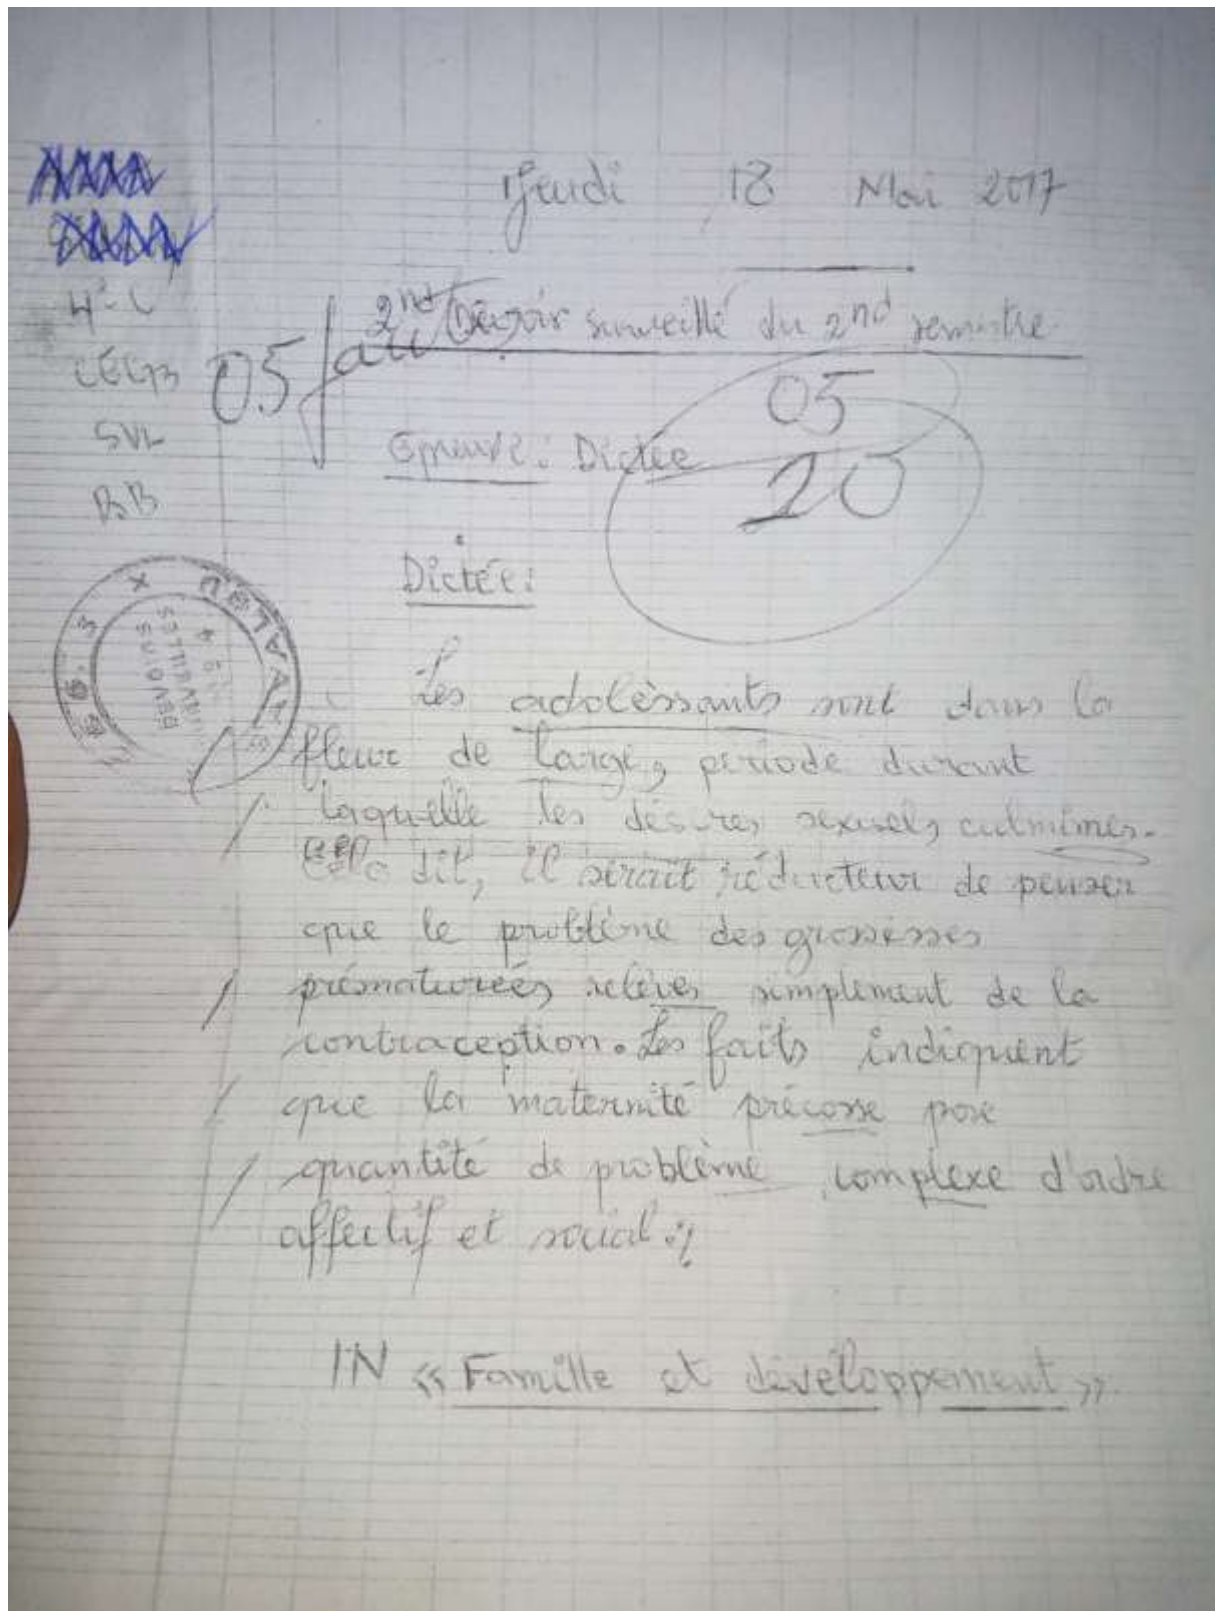 Jeudi 18 Mai 2017
2nd Devoir surveillé du 2nd semestre
4e-C
CEG3
SVL
BB
05
05
20
Epreuve: Dictée
Dictée:
Les adolèssants sont dans la
fleur de l'arge, période durant
laquelle les désires sexuels culmimes.
Cela dit, il serait réducteur de penser
que le problème des grossesses
prématureés relèves simplement de la
contraception. Les faits indiquent
que la maternité précosse pose
quantité de problème complexe d'ordre
affectif et social.
IN « Famille et développement »
DEVOIRS
SURVEILLES